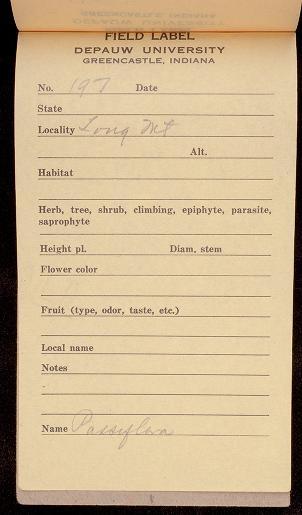 GREENCASTLE, INDIANA
DEPAUW UNIVERSITY
FIELD LABEL
DEPAUW UNIVERSITY
GREENCASTLE, INDIANA
No. 197 Date
State
Locality Long Mt
Alt.
Habitat
Herb, tree, shrub, climbing, epiphyte, parasite,
saprophyte
Height pl. Diam. stem
Flower color
Fruit (type, odor, taste, etc.)
Local name
Notes
Name Passiflora